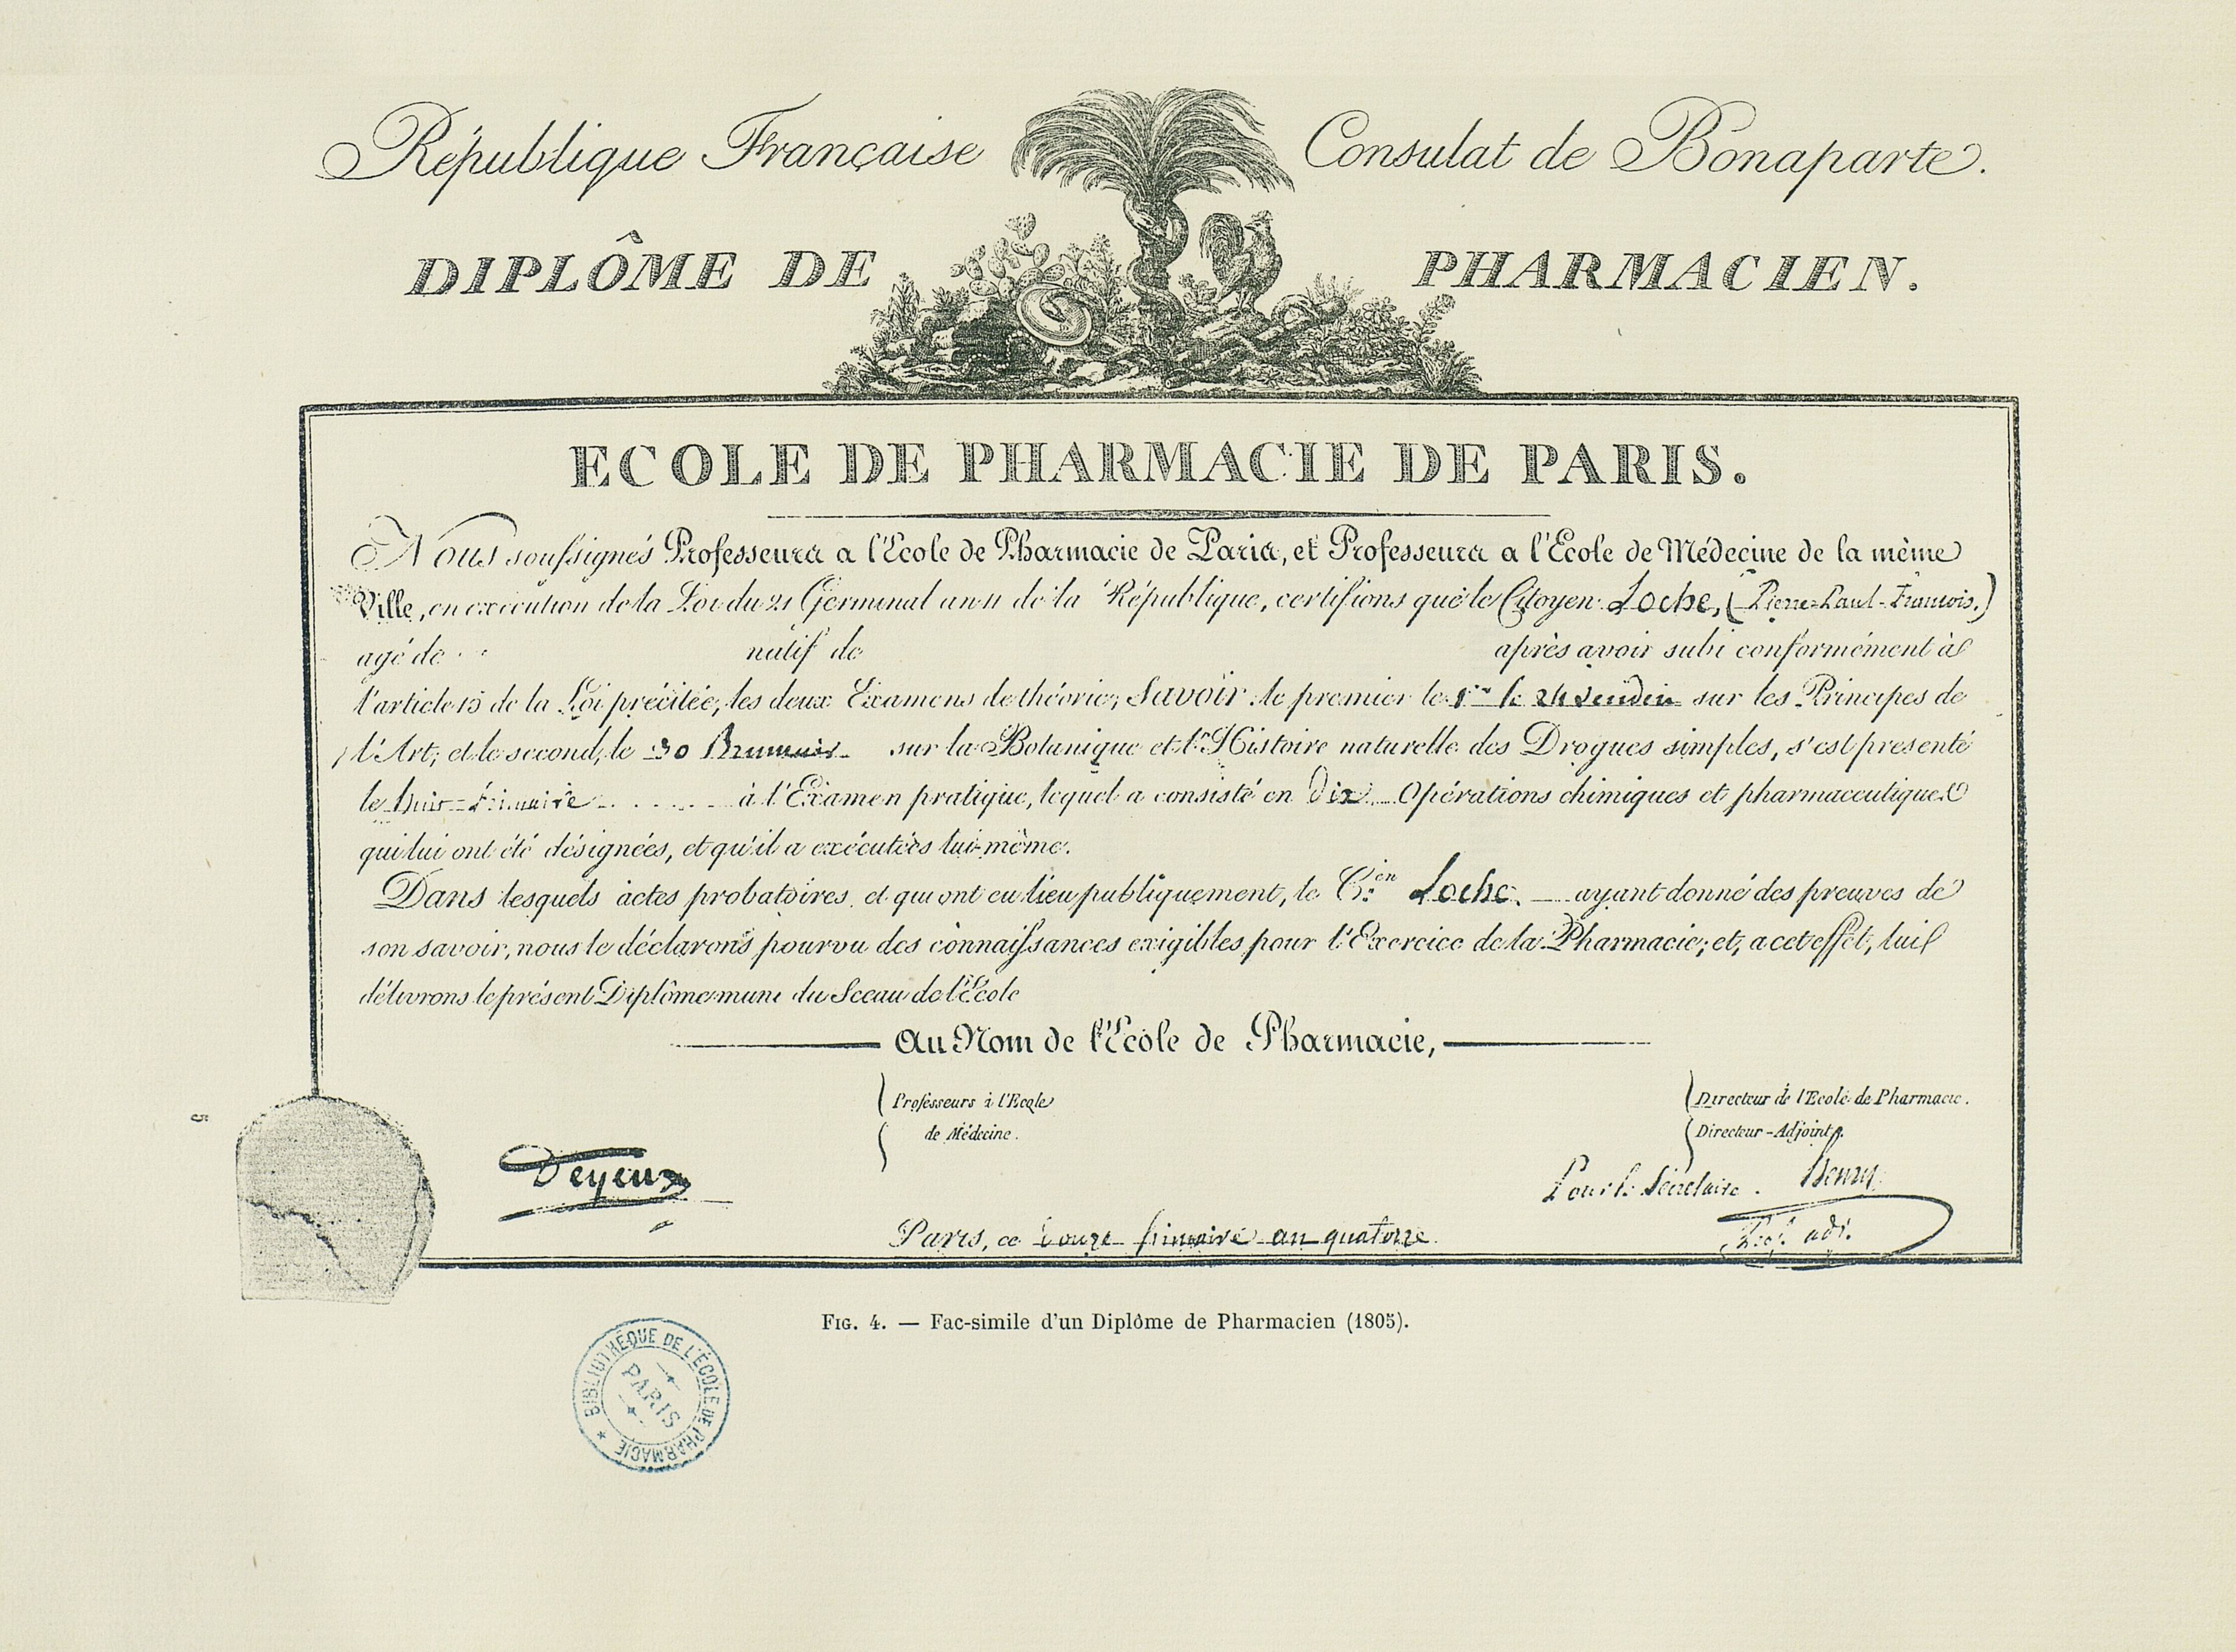 République Française Consulat de Bonaparte.
DIPLÔME DE PHARMACIEN.
ECOLE DE PHARMACIE DE PARIS.
Nous soussignés Professeurs a l'Ecole de Pharmacie de Paris, et Professeurs a l'Ecole de Médecine de la même
Ville, en exécution de la Loi du 21 Germinal an 11 de la République, certifions que le Citoyen Loche, (Pierre-Paul-François.)
agé de natif de après avoir subi conformément à
l'article 15 de la Loi précitée, les deux Examens de théorie; Savoir le premier le 1er le 24 vendém sur les Principes de
l'Art; et le second, le 30 Brumaire sur la Botanique et l'Histoire naturelle des Drogues simples, s'est presenté
le huit Frimaire à l'Examen pratique, lequel a consisté en Dix Opérations chimiques et pharmaceutiques
qui lui ont été désignées, et qu'il a exécutées lui-même.
Dans lesquels actes probatoires, et qui ont eu lieu publiquement, le C.en Loche. ayant donné des preuves de
son savoir, nous le déclarons pourvu des connaissances exigibles pour l'Exercice de la Pharmacie; et, a cet effet, lui
délivrons le présent Diplôme muni du Sceau de l'École
Au Nom de l'Ecole de Pharmacie,
Professeurs à l'Ecole Directeur de l'Ecole de Pharmacie.
de Médecine. Directeur-Adjoint.
Deyeux Pour le Secrétaire. Henry
Prof. adj.
Paris, ce douze frimaire an quatorze.
FIG. 4. — Fac-simile d'un Diplôme de Pharmacien (1805).
BIBLIOTHÈQUE DE L'ÉCOLE DE PHARMACIE
PARIS